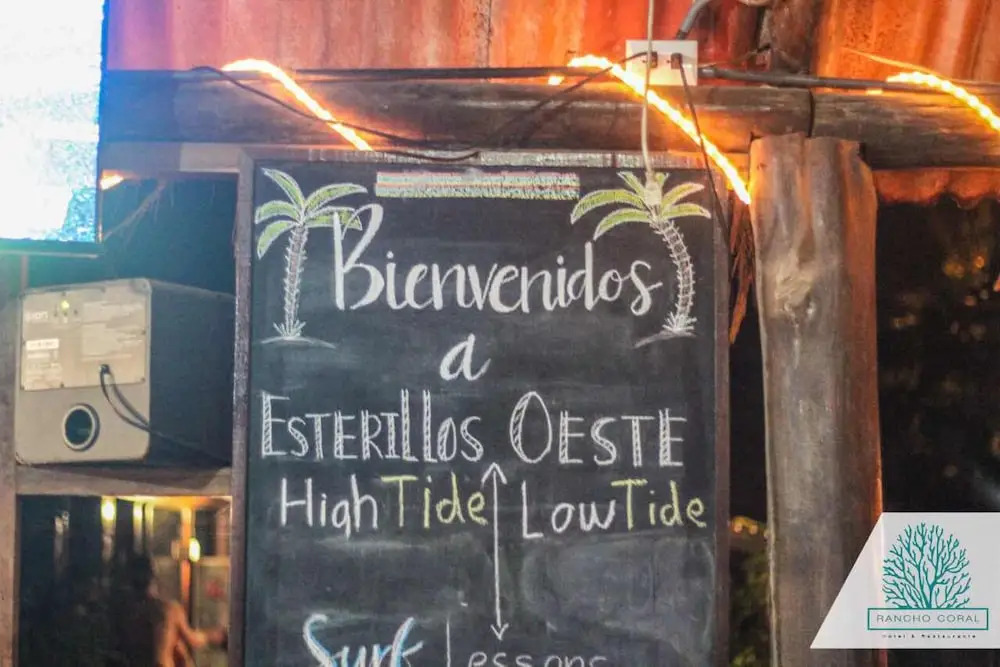 Bienvenidos
a
ESTERILLOS OESTE
HighTide LowTide
Surf Lessons
RANCHO CORAL
Hotel & Restaurante